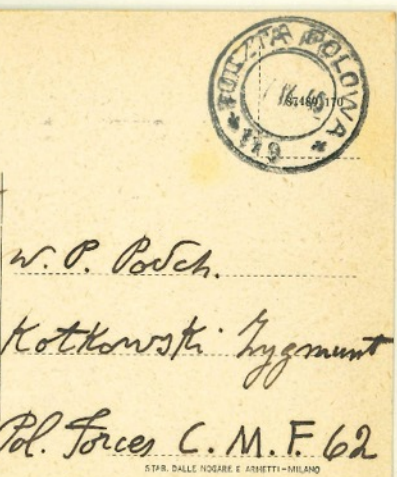 POCZTA POLOWA
W. P. Podch.
Kotkowski Zygmunt
Pol. Forces C. M. F. 62
STAB. DALLE NOGARE E ARMETTI-MILANO